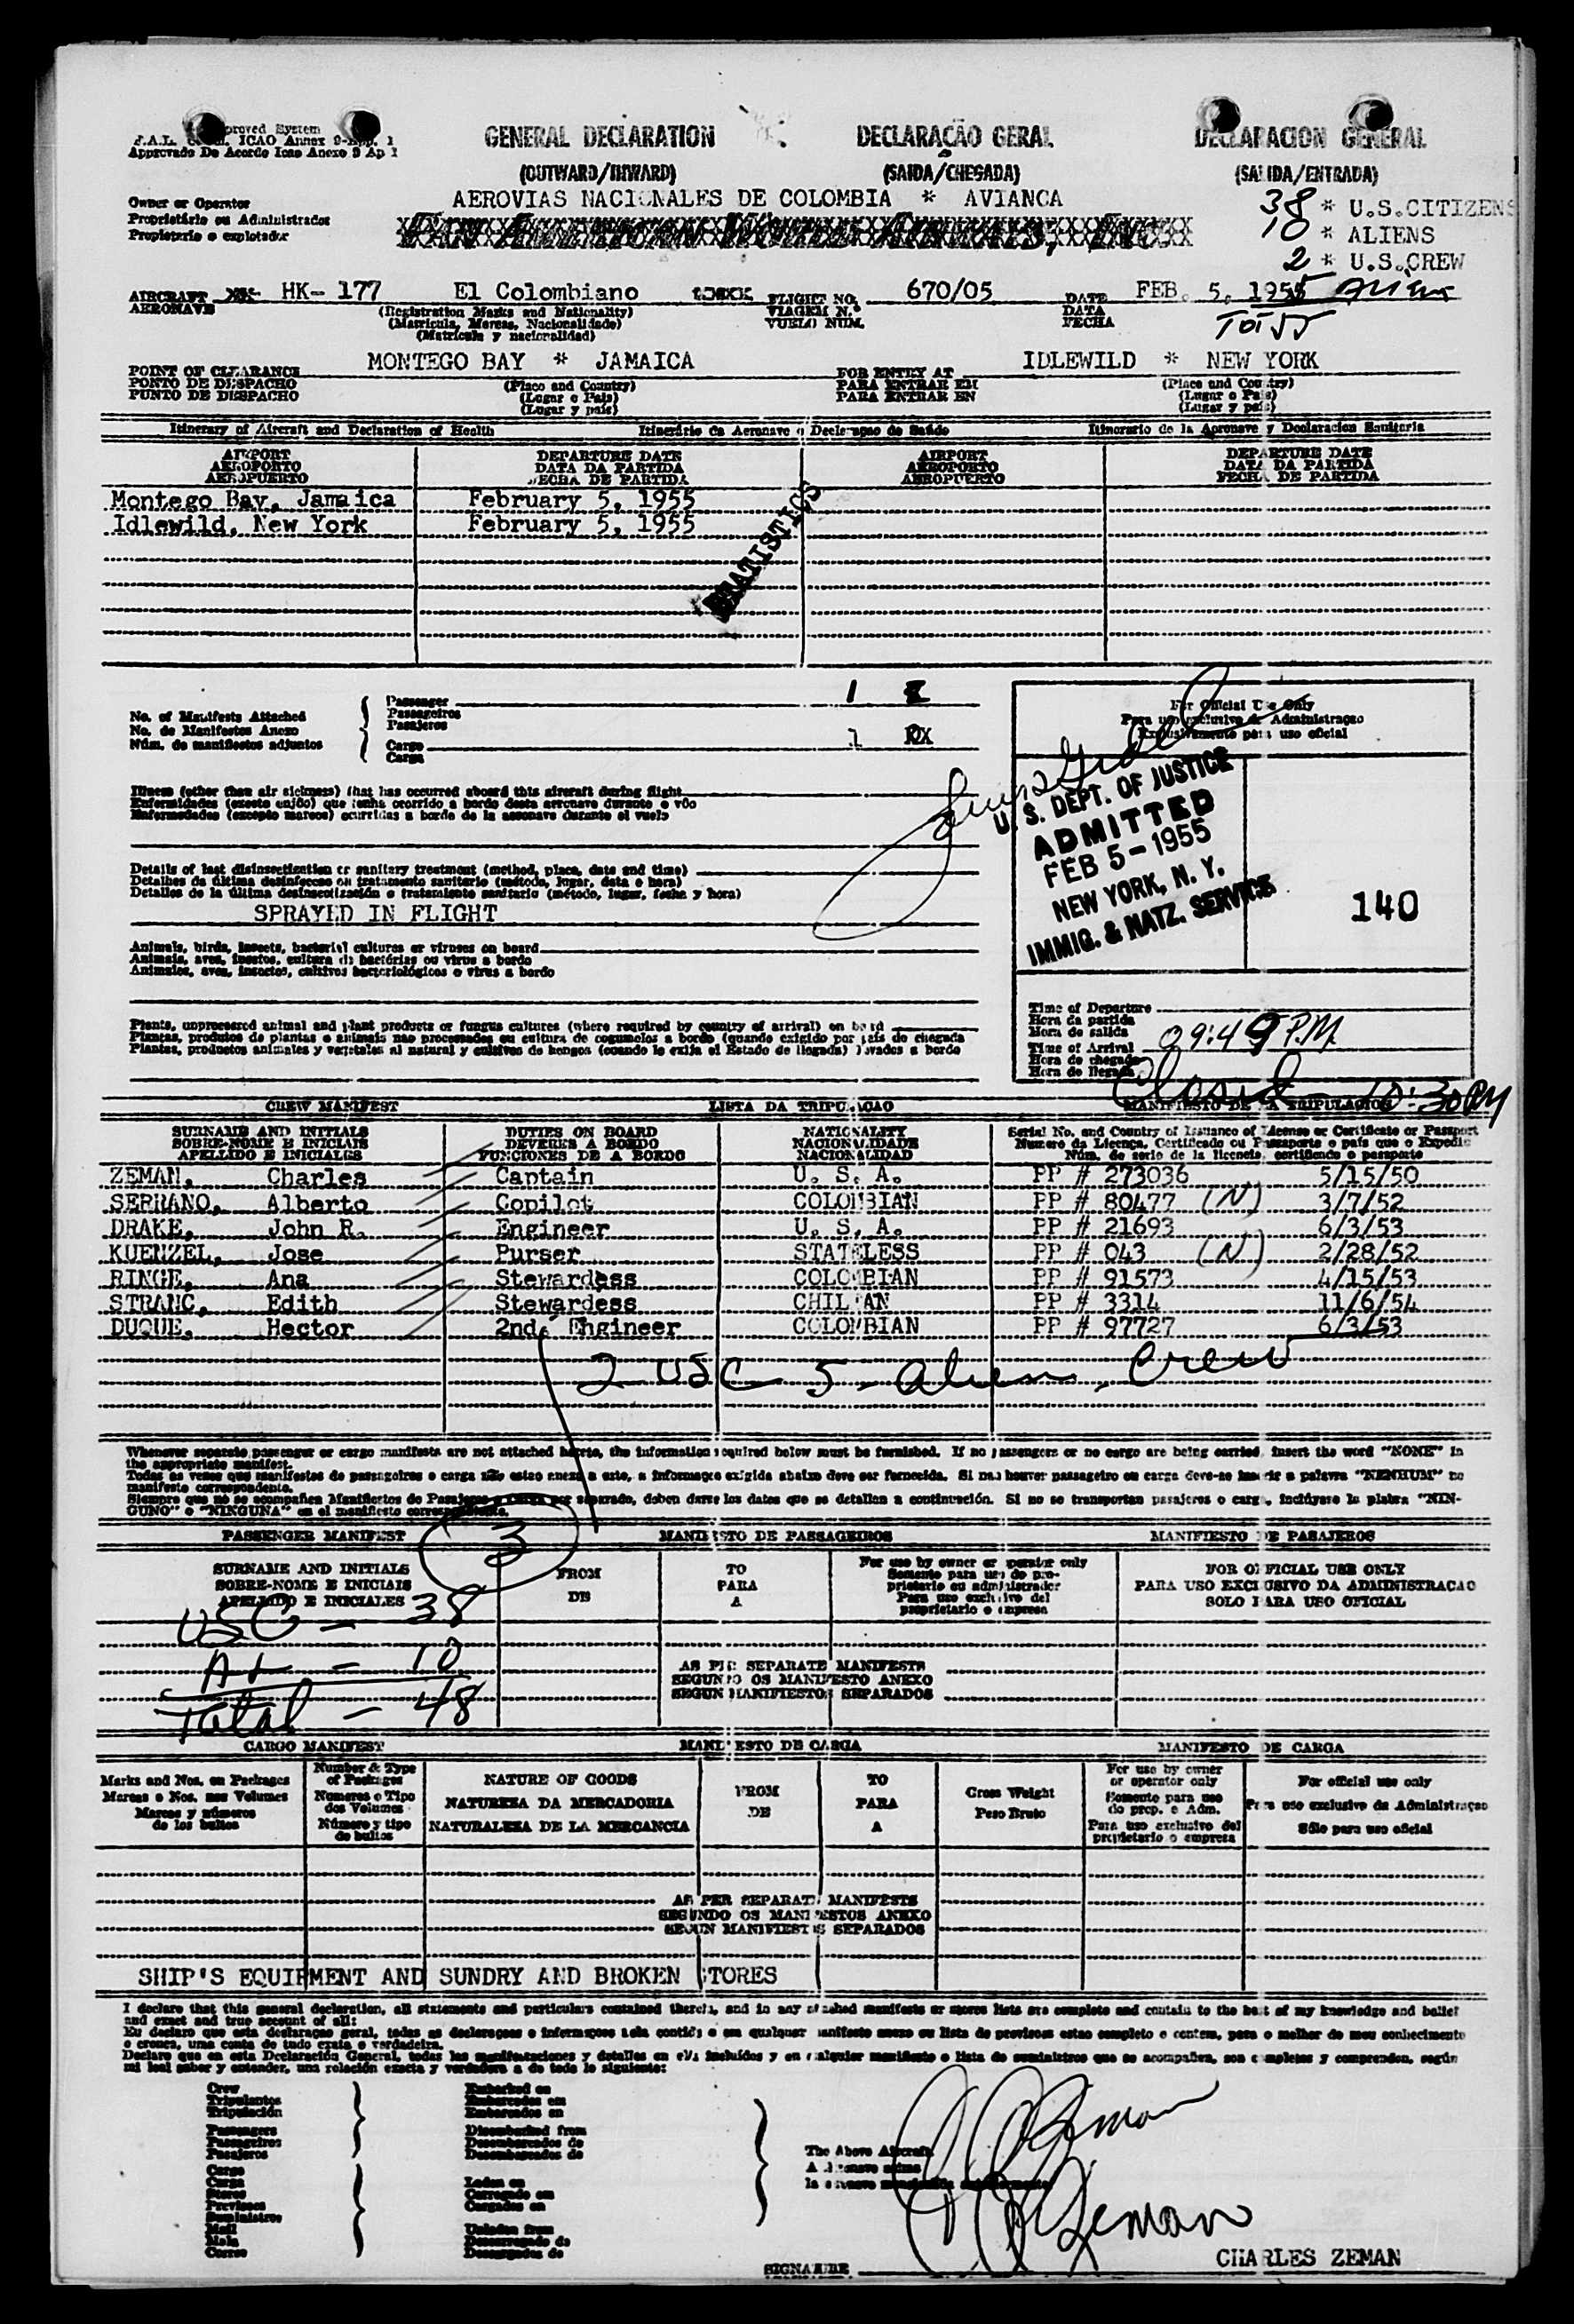 GENERAL DECLARATION
DECLARAÇÃO GERAL
DECLARACION GENERAL
(OUTWARD/INWARD)
(SAIDA/CHEGADA)
(SALIDA/ENTRADA)
proved System
ICAO Annex 9-App. 1
Approvado De Acordo Icao Anexo 9 Ap 1
Owner or Operator
Proprietário ou Administrador
Propietario o explotador
AEROVIAS NACIONALES DE COLOMBIA * AVIANCA
38 * U.S.CITIZENS
10 * ALIENS
2 * U.S.CREW
AIRCRAFT HK- 177 El Colombiano
AERONAVE
(Registration Marks and Nationality)
(Matricula, Marcas, Nacionalidade)
(Matricula y nacionalidad)
FLIGHT NO. 670/05
VIAGEM N.º
VUELO NUM.
DATE FEB. 5, 1955
DATA
FECHA
POINT OF CLEARANCE MONTEGO BAY * JAMAICA
PONTO DE DESPACHO
PUNTO DE DESPACHO
(Place and Country)
(Lugar e Pais)
(Lugar y pais)
FOR ENTRY AT IDLEWILD * NEW YORK
PARA ENTRAR EM
PARA ENTRAR EN
(Place and Country)
(Lugar e Pais)
(Lugar y pais)
Itinerary of Aircraft and Declaration of Health
Itinerário da Aeronave e Declaraçao de Saúde
Itinerario de la Aeronave y Declaracion Sanitaria
AIRPORT
AEROPORTO
AEROPUERTO
DEPARTURE DATE
DATA DA PARTIDA
FECHA DE PARTIDA
AIRPORT
AEROPORTO
AEROPUERTO
DEPARTURE DATE
DATA DA PARTIDA
FECHA DE PARTIDA
Montego Bay, Jamaica February 5, 1955
Idlewild, New York February 5, 1955
STATISTICS
No. of Manifests Attached
No. de Manifestos Anexo
Núm. de manifiestos adjuntos
Passenger 1
Passageiros
Pasajeros
Cargo 1
Carga
For Official Use Only
Para uso exclusivo da Administraçao
Exclusivamente para uso oficial
U. S. DEPT. OF JUSTICE
ADMITTED
FEB 5 - 1955
NEW YORK, N. Y.
IMMIG. & NATZ. SERVICE
140
Illness (other than air sickness) that has occurred aboard this aircraft during flight
Enfermidades (exceto enjôo) que tenha ocorrido a bordo desta aeronave durante o vôo
Enfermedades (excepto mareos) ocurridas a bordo de la aeronave durante el vuelo
Details of last disinsectization or sanitary treatment (method, place, date and time)
Detalhes da última desinfeccao ou tratamento sanitario (método, lugar, data e hora)
Detalles de la última desinsectización o tratamiento sanitario (método, lugar, fecha y hora)
SPRAYED IN FLIGHT
Animals, birds, insects, bacterial cultures or viruses on board
Animais, aves, insetos, cultura de bactérias ou virus a bordo
Animales, aves, insectos, cultivos bacteriológicos o virus a bordo
Plants, unprocessed animal and plant products or fungus cultures (where required by country of arrival) on board
Plantas, produtos de plantas e animais nao processados ou cultura de cogumelos a bordo (quando exigido por pais de chegada
Plantas, productos animales y vegetales al natural y cultivos de hongos (cuando lo exija el Estado de llegada) llevados a bordo
Time of Departure
Hora da partida
Hora de salida
Time of Arrival 09:49 P.M.
Hora de chegada
Hora de llegada
Closed - 10:30 PM
CREW MANIFEST
LISTA DA TRIPULAÇAO
MANIFIESTO DE LA TRIPULACION
SURNAME AND INITIALS
SOBRE-NOME E INICIAIS
APELLIDO E INICIALES
DUTIES ON BOARD
DEVERES A BORDO
FUNCIONES DE A BORDO
NATIONALITY
NACIONALIDADE
NACIONALIDAD
Serial No. and Country of Issuance of License or Certificate or Passport
Numero da Licença, Certificado ou Passaporte e pais que o Expediu
Núm. de serie de la licencia, certificado o pasaporte
ZEMAN, Charles Captain U. S. A. PP # 273036 5/15/50
SERRANO, Alberto Copilot COLOMBIAN PP # 80477 (N) 3/7/52
DRAKE, John R. Engineer U. S. A. PP # 21693 6/3/53
KUENZEL, Jose Purser STATELESS PP # 043 (N) 2/28/52
RINGE, Ana Stewardess COLOMBIAN PP # 91573 4/15/53
STRANC, Edith Stewardess CHILEAN PP # 3314 11/6/54
DUQUE, Hector 2nd. Engineer COLOMBIAN PP # 97727 6/3/53
2 USC 5 - Alien - Crew
Whenever separate passenger or cargo manifests are not attached hereto, the information required below must be furnished. If no passengers or no cargo are being carried, insert the word "NONE" in
the appropriate manifest.
Todas as vezes que manifestos de passageiros e carga não estao anexo a este, a informaçao exigida abaixo deve ser fornecida. Si nao houver passageiro ou carga deve-se inserir a palavra "NENHUM" no
manifesto correspondente.
Siempre que no se acompañen Manifiestos de Pasajeros o Carga por separado, deben darse los datos que se detallan a continuación. Si no se transportan pasajeros o carga, inclúyase la plabra "NIN-
GUNO" o "NINGUNA" en el manifiesto correspondiente.
PASSENGER MANIFEST
MANIFESTO DE PASSAGEIROS
MANIFIESTO DE PASAJEROS
3
SURNAME AND INITIALS
SOBRE-NOME E INICIAIS
APELLIDO E INICIALES
FROM
DE
TO
PARA
A
For use by owner or operator only
Somente para uso do pro-
prietario ou administrador
Para uso exclusivo del
proprietario o empresa
FOR OFFICIAL USE ONLY
PARA USO EXCLUSIVO DA ADMINISTRACAO
SOLO PARA USO OFICIAL
USC - 38
AL - 10
Total - 48
AS PER SEPARATE MANIFESTS
SEGUNDO OS MANIFESTO ANEXO
SEGUN MANIFIESTOS SEPARADOS
CARGO MANIFEST
MANIFESTO DE CARGA
MANIFESTO DE CARGA
Marks and Nos. on Packages
Marcas e Nos. nos Volumes
Marcas y números
de los bultos
Number & Type
of Packages
Numeros e Tipo
dos Volumes
Número y tipo
de bultos
NATURE OF GOODS
NATUREZA DA MERCADORIA
NATURALEZA DE LA MERCANCIA
FROM
DE
TO
PARA
A
Gross Weight
Peso Bruto
For use by owner
or operator only
Somente para uso
do prop. e Adm.
Para uso exclusivo del
propietario o empresa
For official use only
Para uso exclusivo da Administraçao
Sólo para uso oficial
AS PER SEPARATE MANIFESTS
SEGUNDO OS MANIFESTOS ANEXO
SEGUN MANIFIESTOS SEPARADOS
SHIP'S EQUIPMENT AND SUNDRY AND BROKEN STORES
I declare that this general declaration, all statements and particulars contained therein, and in any attached manifests or stores lists are complete and contain to the best of my knowledge and belief
and exact and true account of all:
Eu declaro que esta declaraçao geral, todas as declaraçoes e informaçoes nela contidas e em qualquer manifesto anexo ou lista de provisoes estao completo e contem, para o melhor de meu conhecimento
e crença, uma conta de tudo exata e verdadeira.
Declaro que en esta Declaración General, todas las manifestaciones y detalles en ella incluidos y en cualquier manifiesto o lista de suministros que se acompañen, son completos y comprenden, según
mi leal saber y entender, una relación exacta y verdadera de todo lo siguiente:
Crew
Tripulantes
Tripulación
Passengers
Passageiros
Pasajeros
Cargo
Carga
Stores
Provisoes
Suministros
Mail
Mala
Correo
Embarked on
Embarcados em
Embarcados en
Disembarked from
Desembarcados de
Desembarcados de
Laden on
Carregado em
Cargados en
Unladen from
Descarregado de
Descargados de
The Above Aircraft
Zeman
Zeman
SIGNATURE
CHARLES ZEMAN